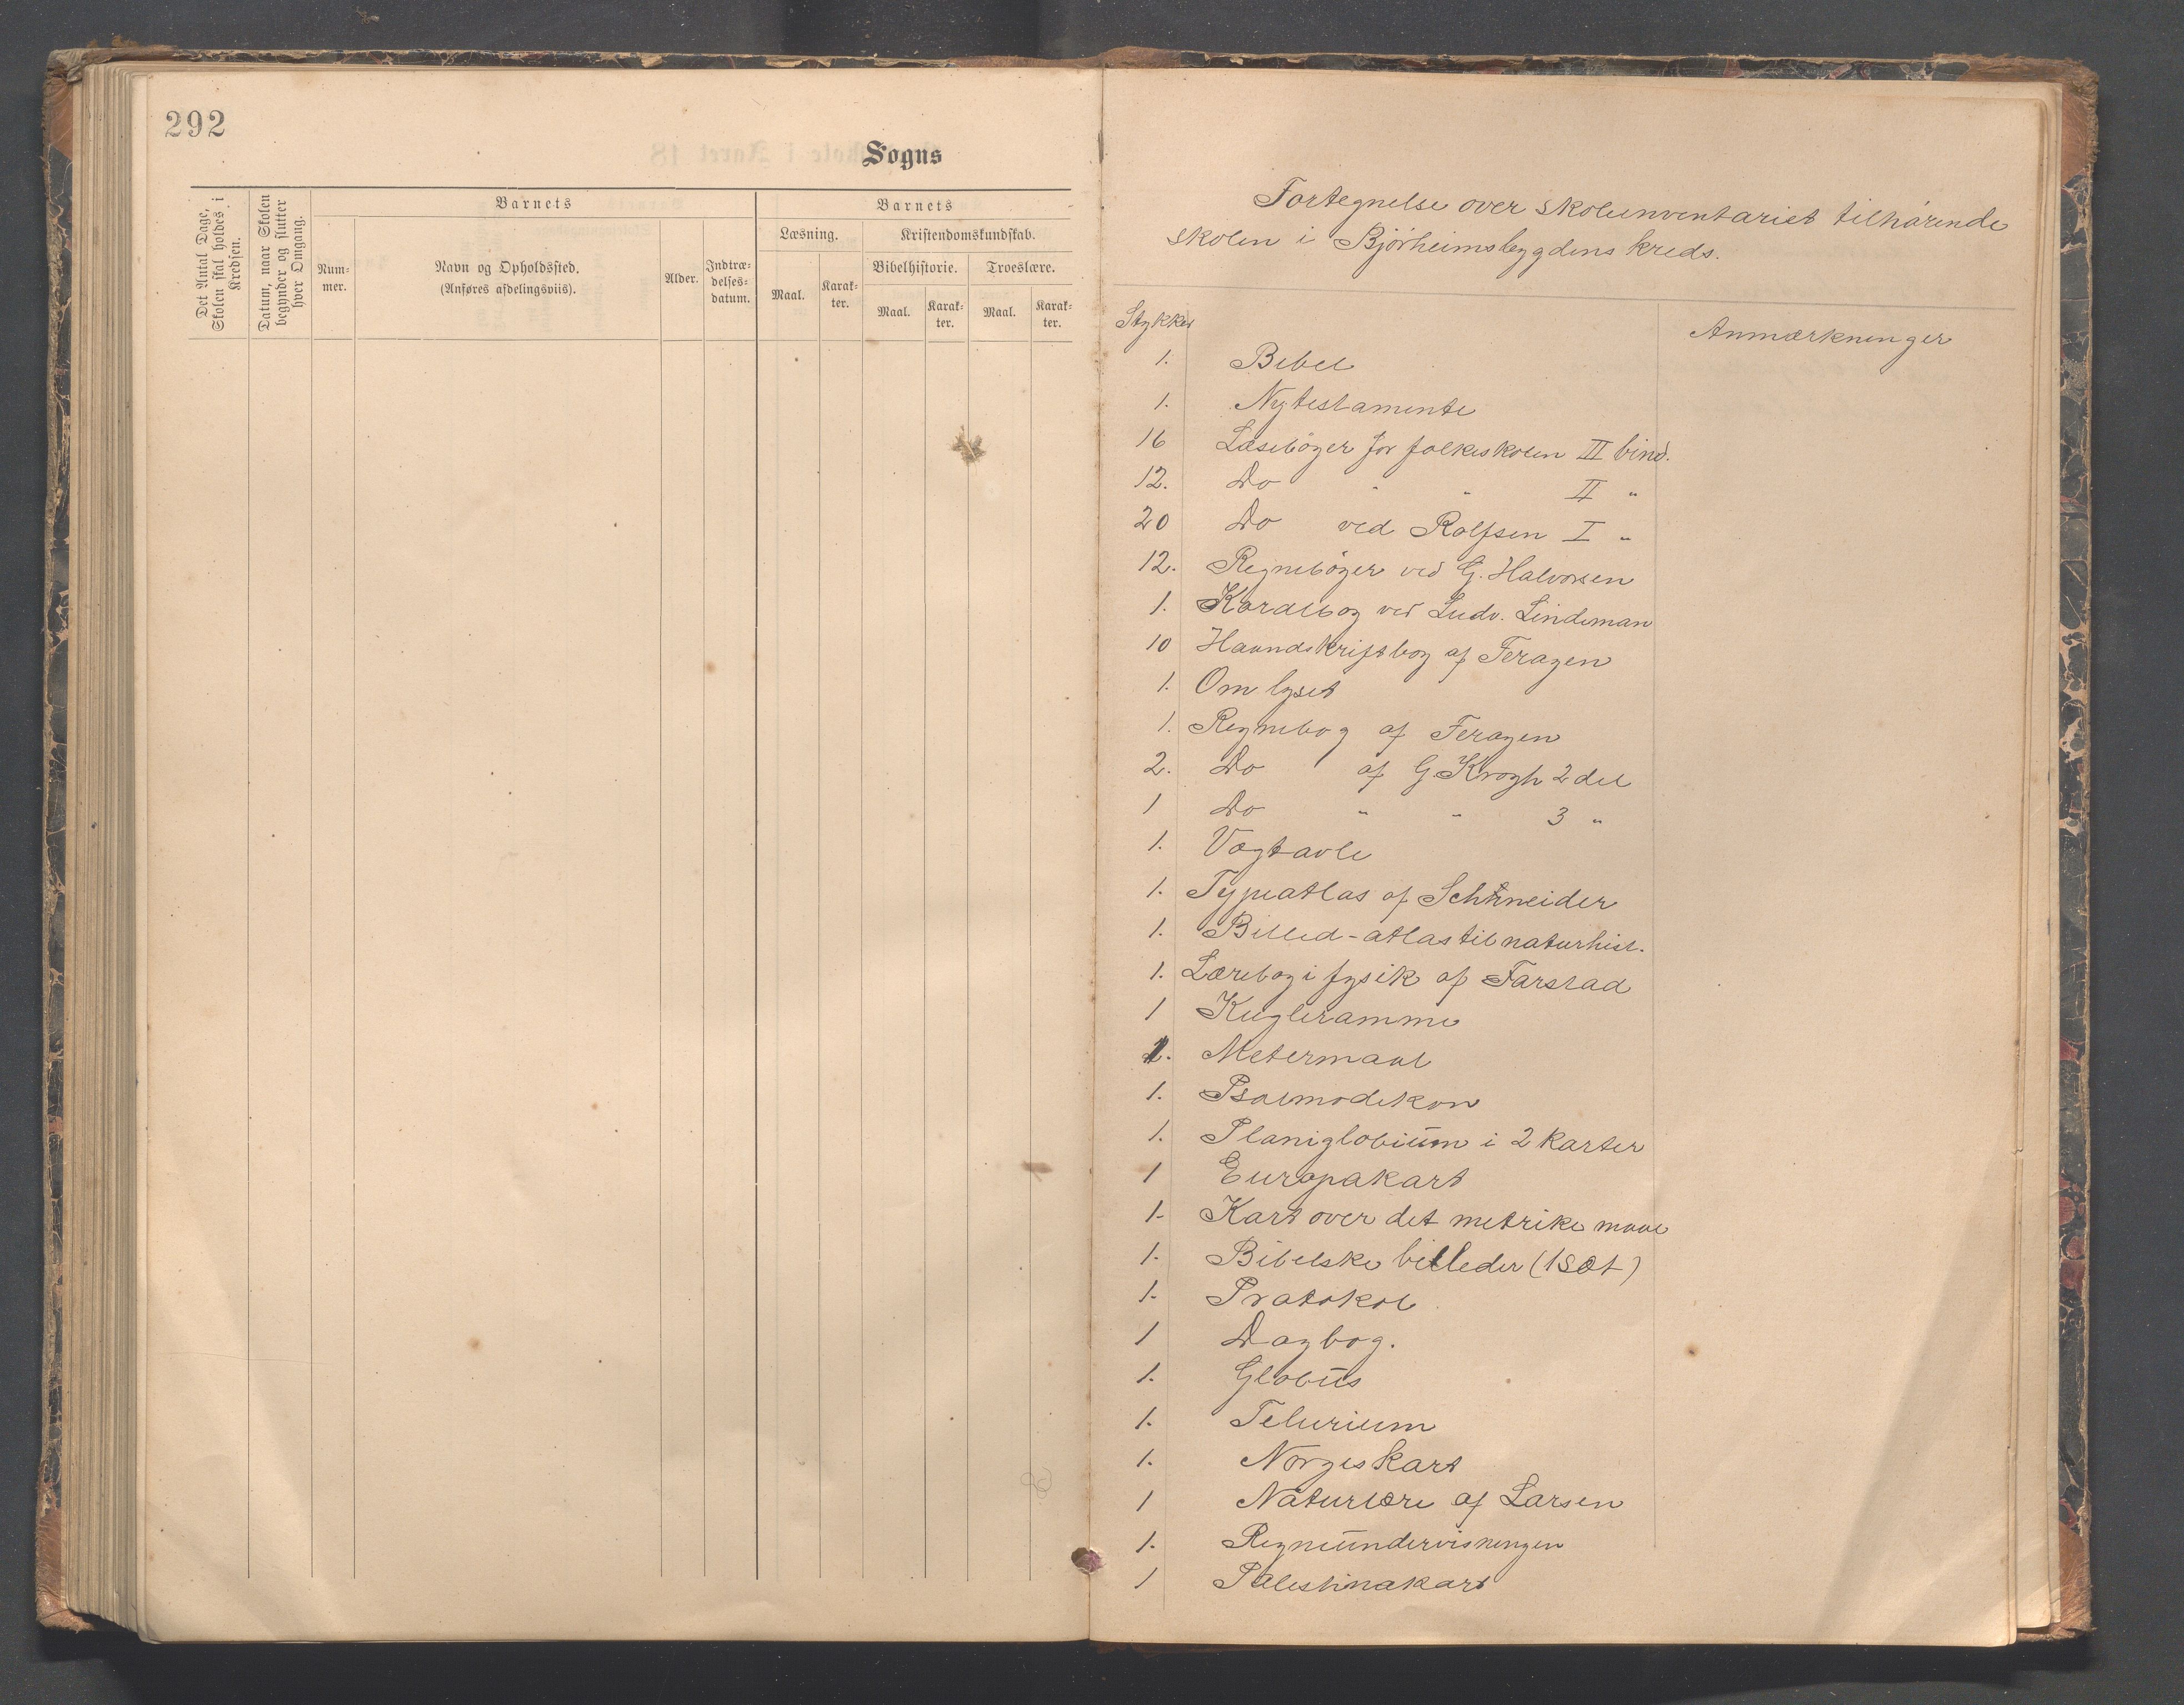 292
Sogns
Det Antal Dage, Skolen skal holdes i Kredsen.
Datum, naar Skolen begynder og slutter hver Omgang.
Barnets
Num-
mer.
Navn og Opholdssted.
(Anføres afdelingsviis).
Alder.
Indtræ-
delses-
datum.
Barnets
Læsning.
Kristendomskundskab.
Maal.
Karak-
ter.
Bibelhistorie.
Troeslære.
Maal.
Karak-
ter.
Maal.
Karak-
ter.
Fortegnelse over skoleinventariet tilhørende
skolen i Bjørheimsbygdens kreds.
Stykker
Anmærkninger
1. Bibel
1. Nytestamente
16 Læsebøger for folkeskolen III bind.
12. Do " " II "
20 Do ved Rolfsen I "
12. Regnebøger ved G. Halvorsen
1. Koralbog ved Ludv. Lindeman
10 Haandskriftbog af Feragen
1. Om lyset
1. Regnebog af Feragen
2. Do af G. Krogh 2 del
1 Do " " 3 "
1. Vægtavle
1. Typeatlas af Schneider
1. Billed-atlas til naturhist.
1. Lærebog i fysik af Farstad
1 Kugleramme
1. Metermaal
1. Psalmodikon
1. Planiglobium i 2 karter
1 Europakart
1. Kart over det metrike maal
1. Bibelske billeder (1 sæt)
1. Protokol
1 Dagbog.
1. Globus
1. Telurium
1. Norgeskart
1 Naturlære af Larsen
1. Regneundervisningen
1 Palestinakart